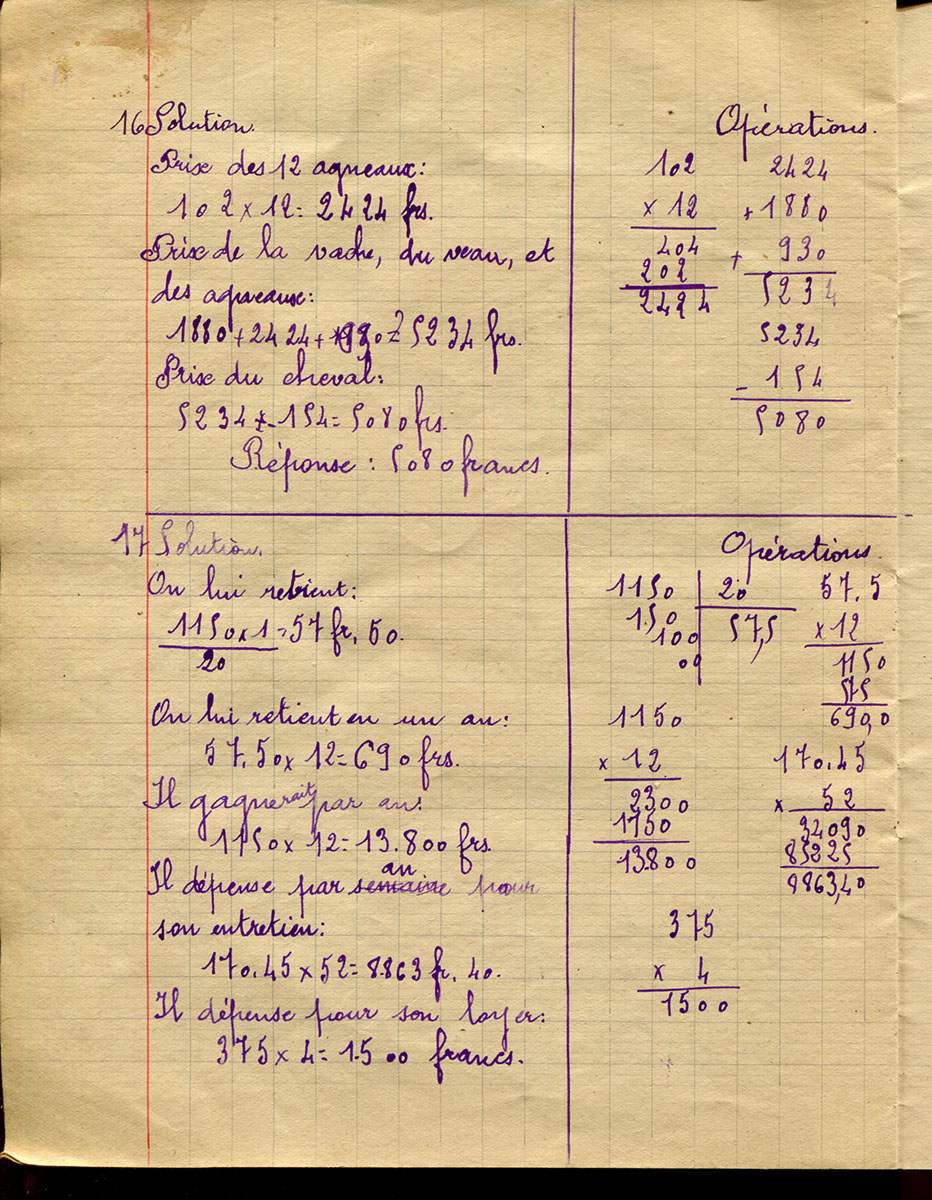 16 Solution.
Prise des 12 agneaux:
102 x 12 = 2424 frs.
Prise de la vache, du veau, et
des agneaux:
1880 + 2424 + 930 = 5234 frs.
Prise du cheval:
5234 - 154 = 5080 frs.
Réponse : 5080 francs.
Opérations.
102
x 12
404
202
2424
2424
+ 1880
+ 930
5234
5234
- 154
5080
17 Solution.
On lui retient:
1150 x 1 = 57 fr, 50.
20
On lui retient en un an:
57.50 x 12 = 690 frs.
Il gagnerait par an:
1150 x 12 = 13.800 frs.
Il dépense par semaine an pour
son entretien:
170.45 x 52 = 8.863 fr, 40.
Il dépense pour son loyer:
375 x 4 = 1.500 francs.
Opérations.
1150 | 20
150 57,5
100
00
57.5
x 12
1150
575
690,0
1150
x 12
2300
1150
13.800
170.45
x 52
34090
85225
8863,40
375
x 4
1500